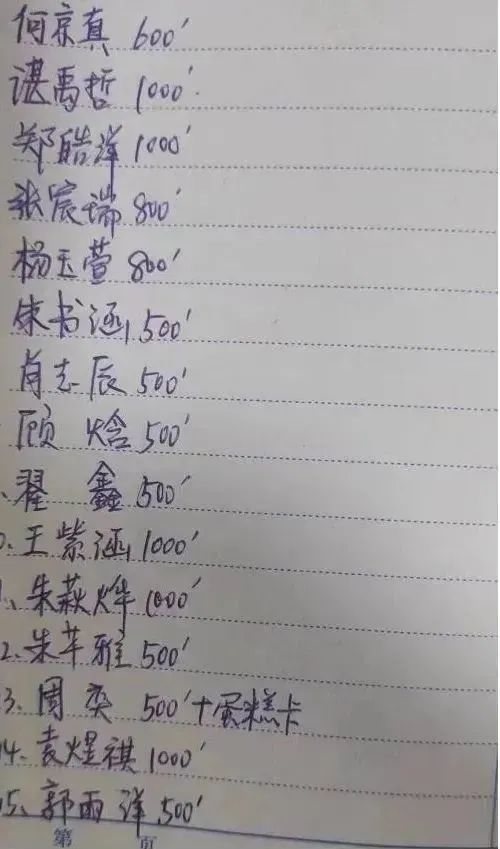 何京真 600′
谌禹哲 1000′
郑皓洋 1000′
张宸瑞 800′
杨玉萱 800′
朱书涵 500′
肖志辰 500′
顾 焓 500′
、翟 鑫 500′
0、王紫涵 1000′
1、朱萩烨 1000′
2、朱芊雅 500′
3、周奕 500′+蛋糕卡
14、袁煜祺 1000′
5、郭雨洋 500′
第 页